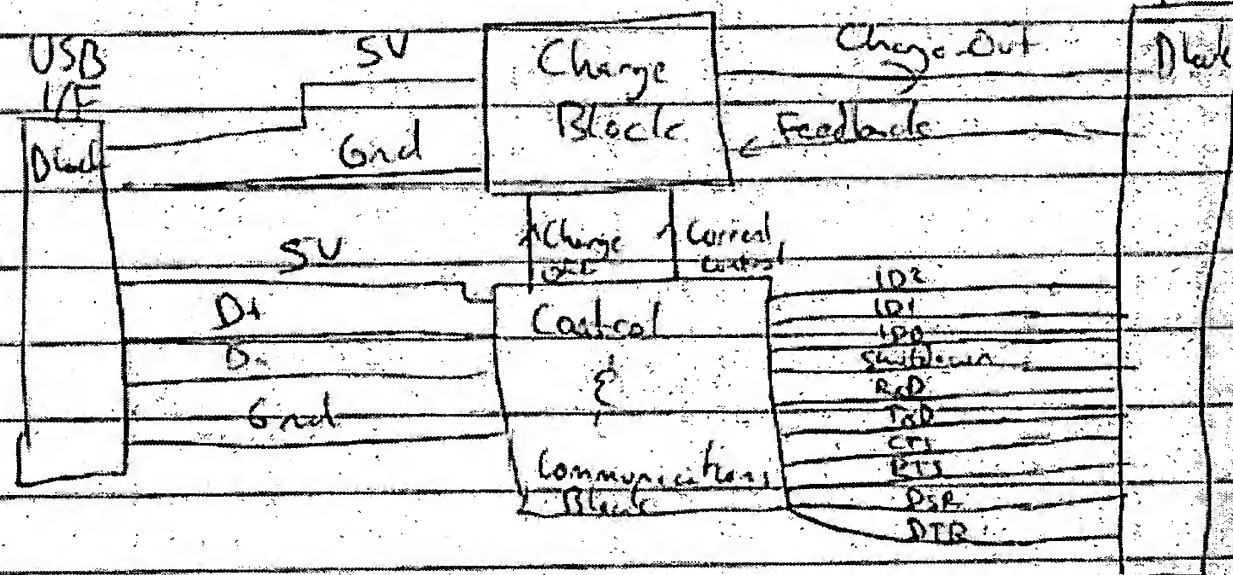 USB
I/F
Block
5V
Gnd
Charge
Block
Charge Out
Feedback
Block
Charge
OFF
Current
Control
5V
D+
D-
Gnd
Control
&
Communications
Block
ID2
ID1
ID0
Shutdown
RxD
TxD
CTS
RTS
DSR
DTR